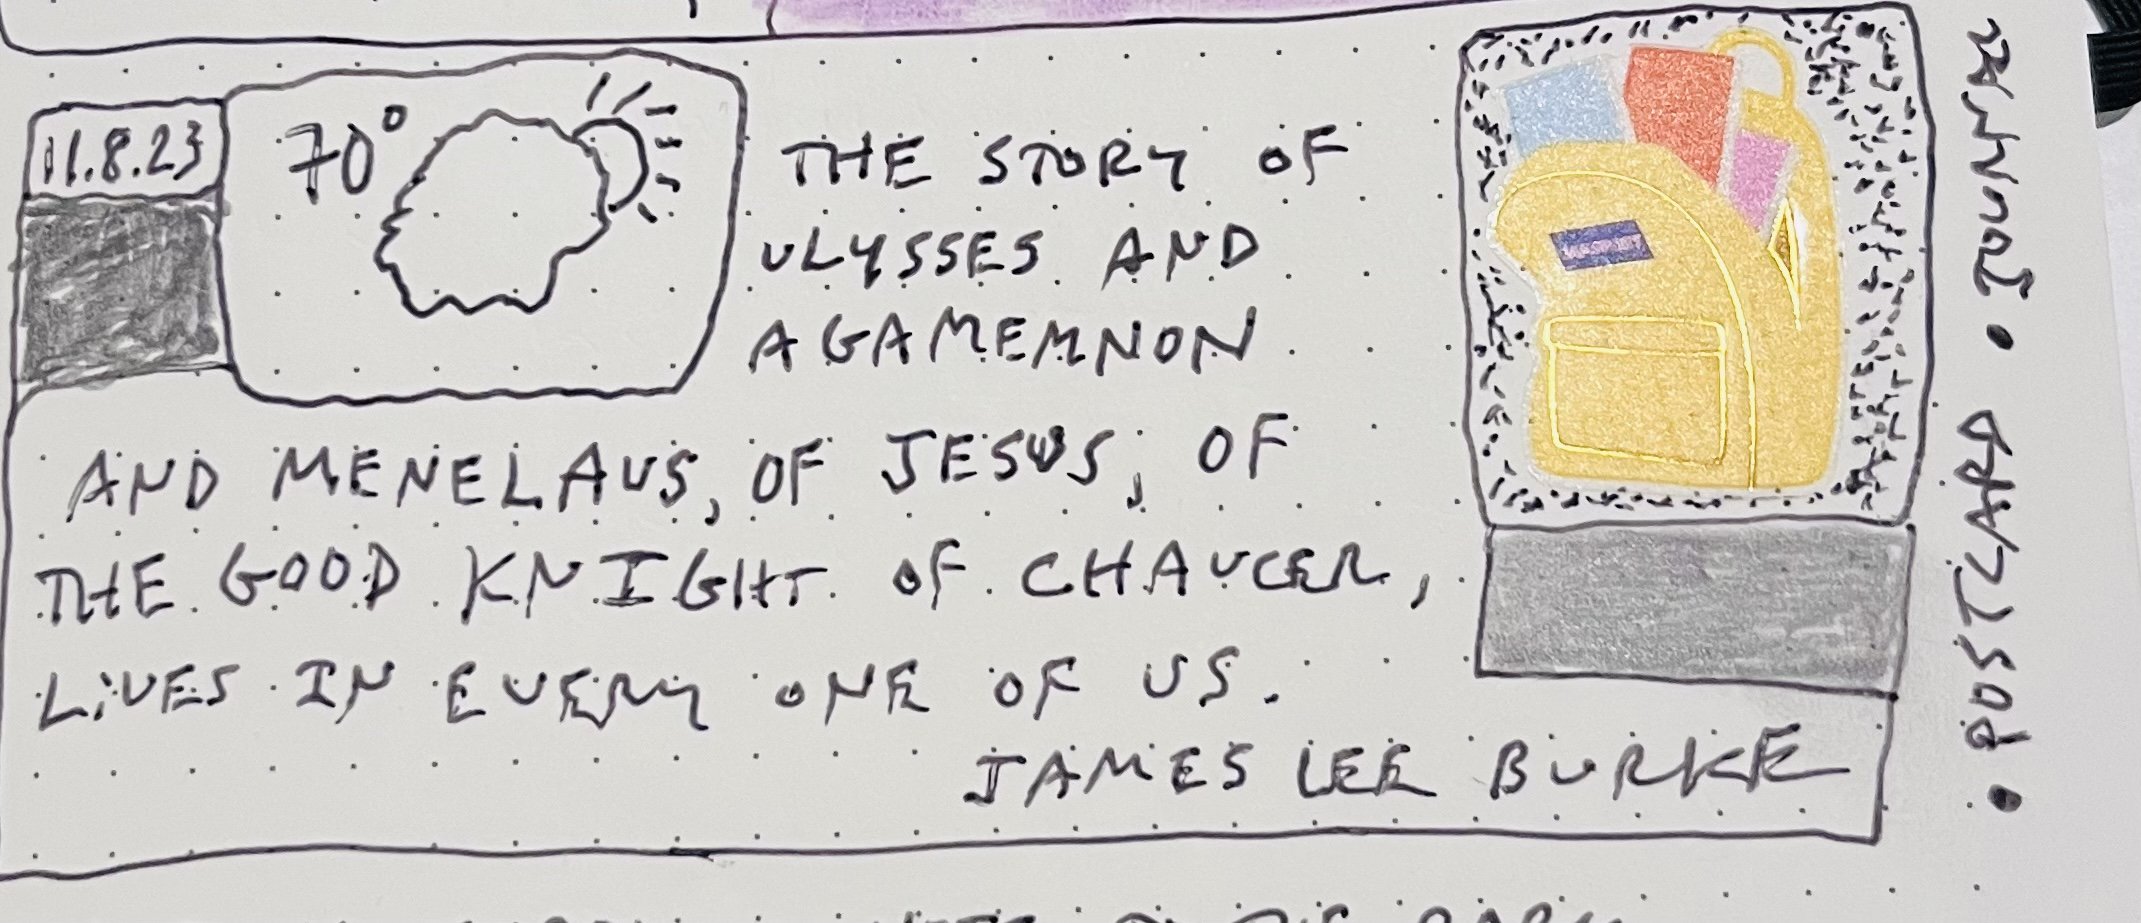 11.8.23
70°
THE STORY OF
ULYSSES AND
AGAMEMNON
AND MENELAUS, OF JESUS, OF
THE GOOD KNIGHT OF CHAUCER,
LIVES IN EVERY ONE OF US.
JAMES LEE BURKE
• POSTCARD • JOURNAL